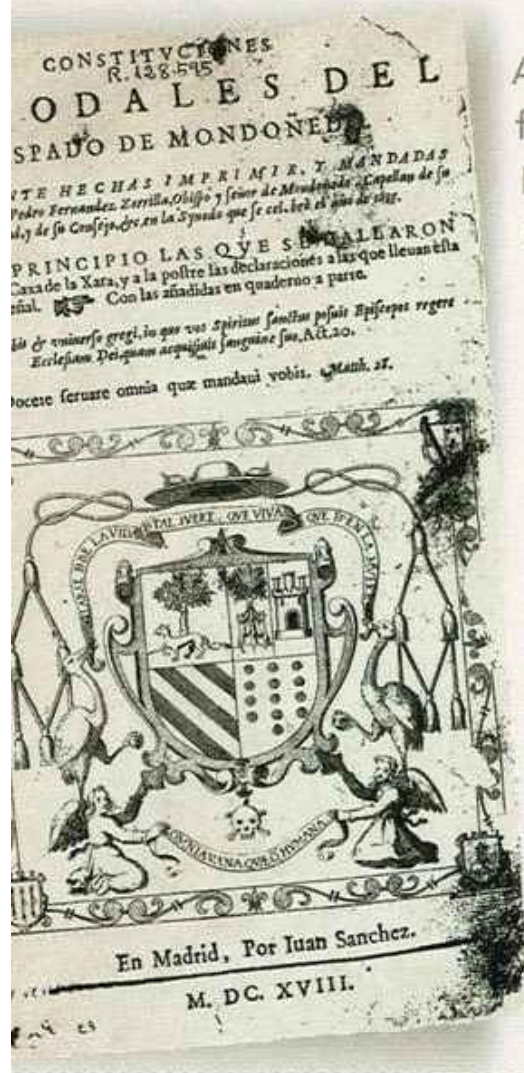 CONSTITVCIONES
R. 128.595
ODALES DEL
SPADO DE MONDOÑEDO
NTE HECHAS IMPRIMIR, Y MANDADAS
Pedro Fernandez Zorrilla, Obispo y señor de Mondoñedo, Capellan de su
d, y de su Consejo, &c. en la Synodo que se celebrò el año de
PRINCIPIO LAS QVE SE HALLARON
Caxa de la Xara, y a la postre las declaraciones a las que lleuan esta
eñal. Con las añadidas en quaderno a parte.
bis & vniuerso gregi, in quo vos Spiritus sanctus posuit Episcopos regere
Ecclesiam Dei, quam acquisiuit sanguine suo, Act. 20.
Docete seruare omnia quæ mandaui vobis. Matth. 28.
LA VIDA ES TAL MVERE, QVE VIVA QVE
OMNIA VANA QVAE HVMANA
En Madrid, Por Iuan Sanchez.
M. DC. XVIII.
A
f